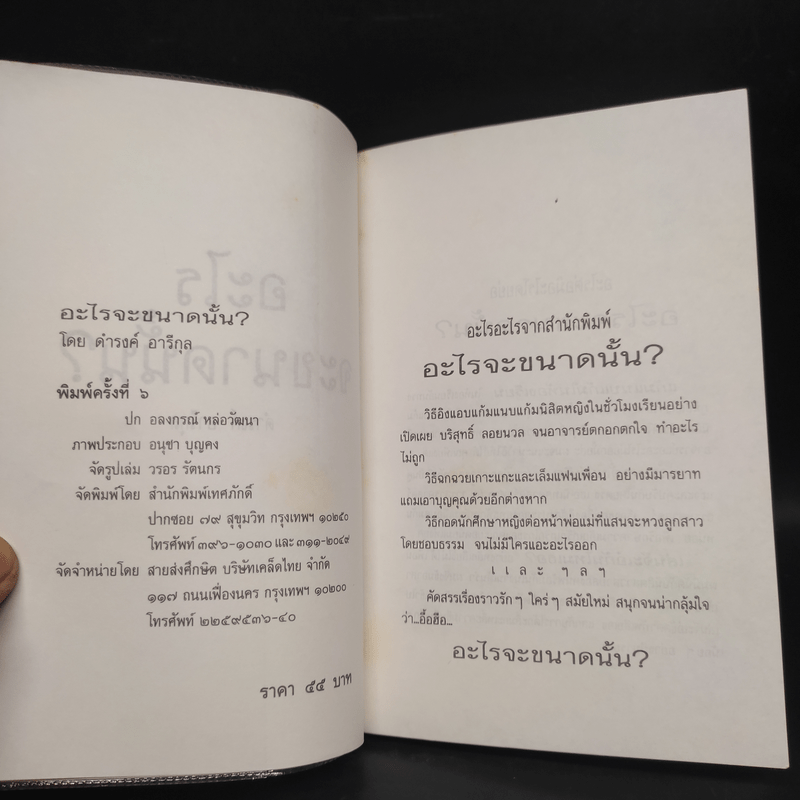 อะไรจะขนาดนั้น?
โดย ดำรงค์ อารีกุล
พิมพ์ครั้งที่ ๖
ปก อลงกรณ์ หล่อวัฒนา
ภาพประกอบ อนุชา บุญคง
จัดรูปเล่ม วรอร รัตนกร
จัดพิมพ์โดย สำนักพิมพ์เทศภักดิ์
ปากซอย ๗๙ สุขุมวิท กรุงเทพฯ ๑๐๒๕๐
โทรศัพท์ ๓๙๖-๑๐๓๐ และ ๓๑๑-๒๐๔๙
จัดจำหน่ายโดย สายส่งศึกษิต บริษัทเคล็ดไทย จำกัด
๑๑๗ ถนนเฟื่องนคร กรุงเทพฯ ๑๐๒๐๐
โทรศัพท์ ๒๒๕๙๕๓๖-๔๐
ราคา ๕๕ บาท
อะไรอะไรจากสำนักพิมพ์
อะไรจะขนาดนั้น?
วิธีอิงแอบแก้มแนบแก้มนิสิตหญิงในชั่วโมงเรียนอย่าง
เปิดเผย บริสุทธิ์ ลอยนวล จนอาจารย์ตกอกตกใจ ทำอะไร
ไม่ถูก
วิธีฉกฉวยเกาะแกะและเล็มแฟนเพื่อน อย่างมีมารยาท
แถมเอาบุญคุณด้วยอีกต่างหาก
วิธีกอดนักศึกษาหญิงต่อหน้าพ่อแม่ที่แสนจะหวงลูกสาว
โดยชอบธรรม จนไม่มีใครแอะอะไรออก
เเละ ฯลฯ
คัดสรรเรื่องราวรักๆ ใคร่ๆ สมัยใหม่ สนุกจนน่ากลุ้มใจ
ว่า...อื้อฮือ...
อะไรจะขนาดนั้น?